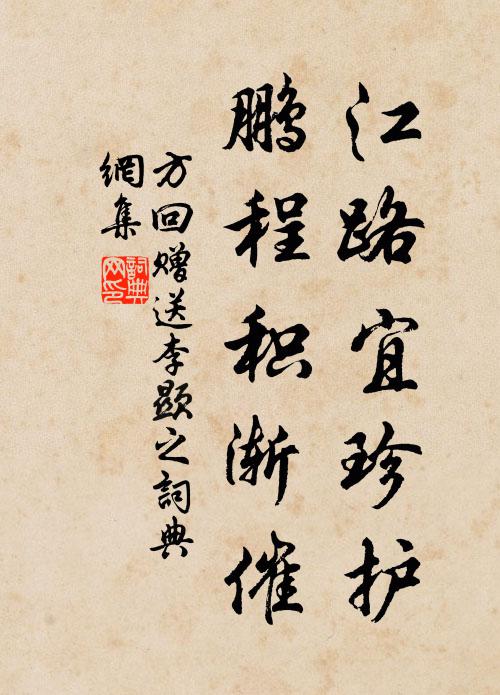 江路宜珍护
鹏程积渐催
方回赠送李顕之詞典
網集
詞典
网印